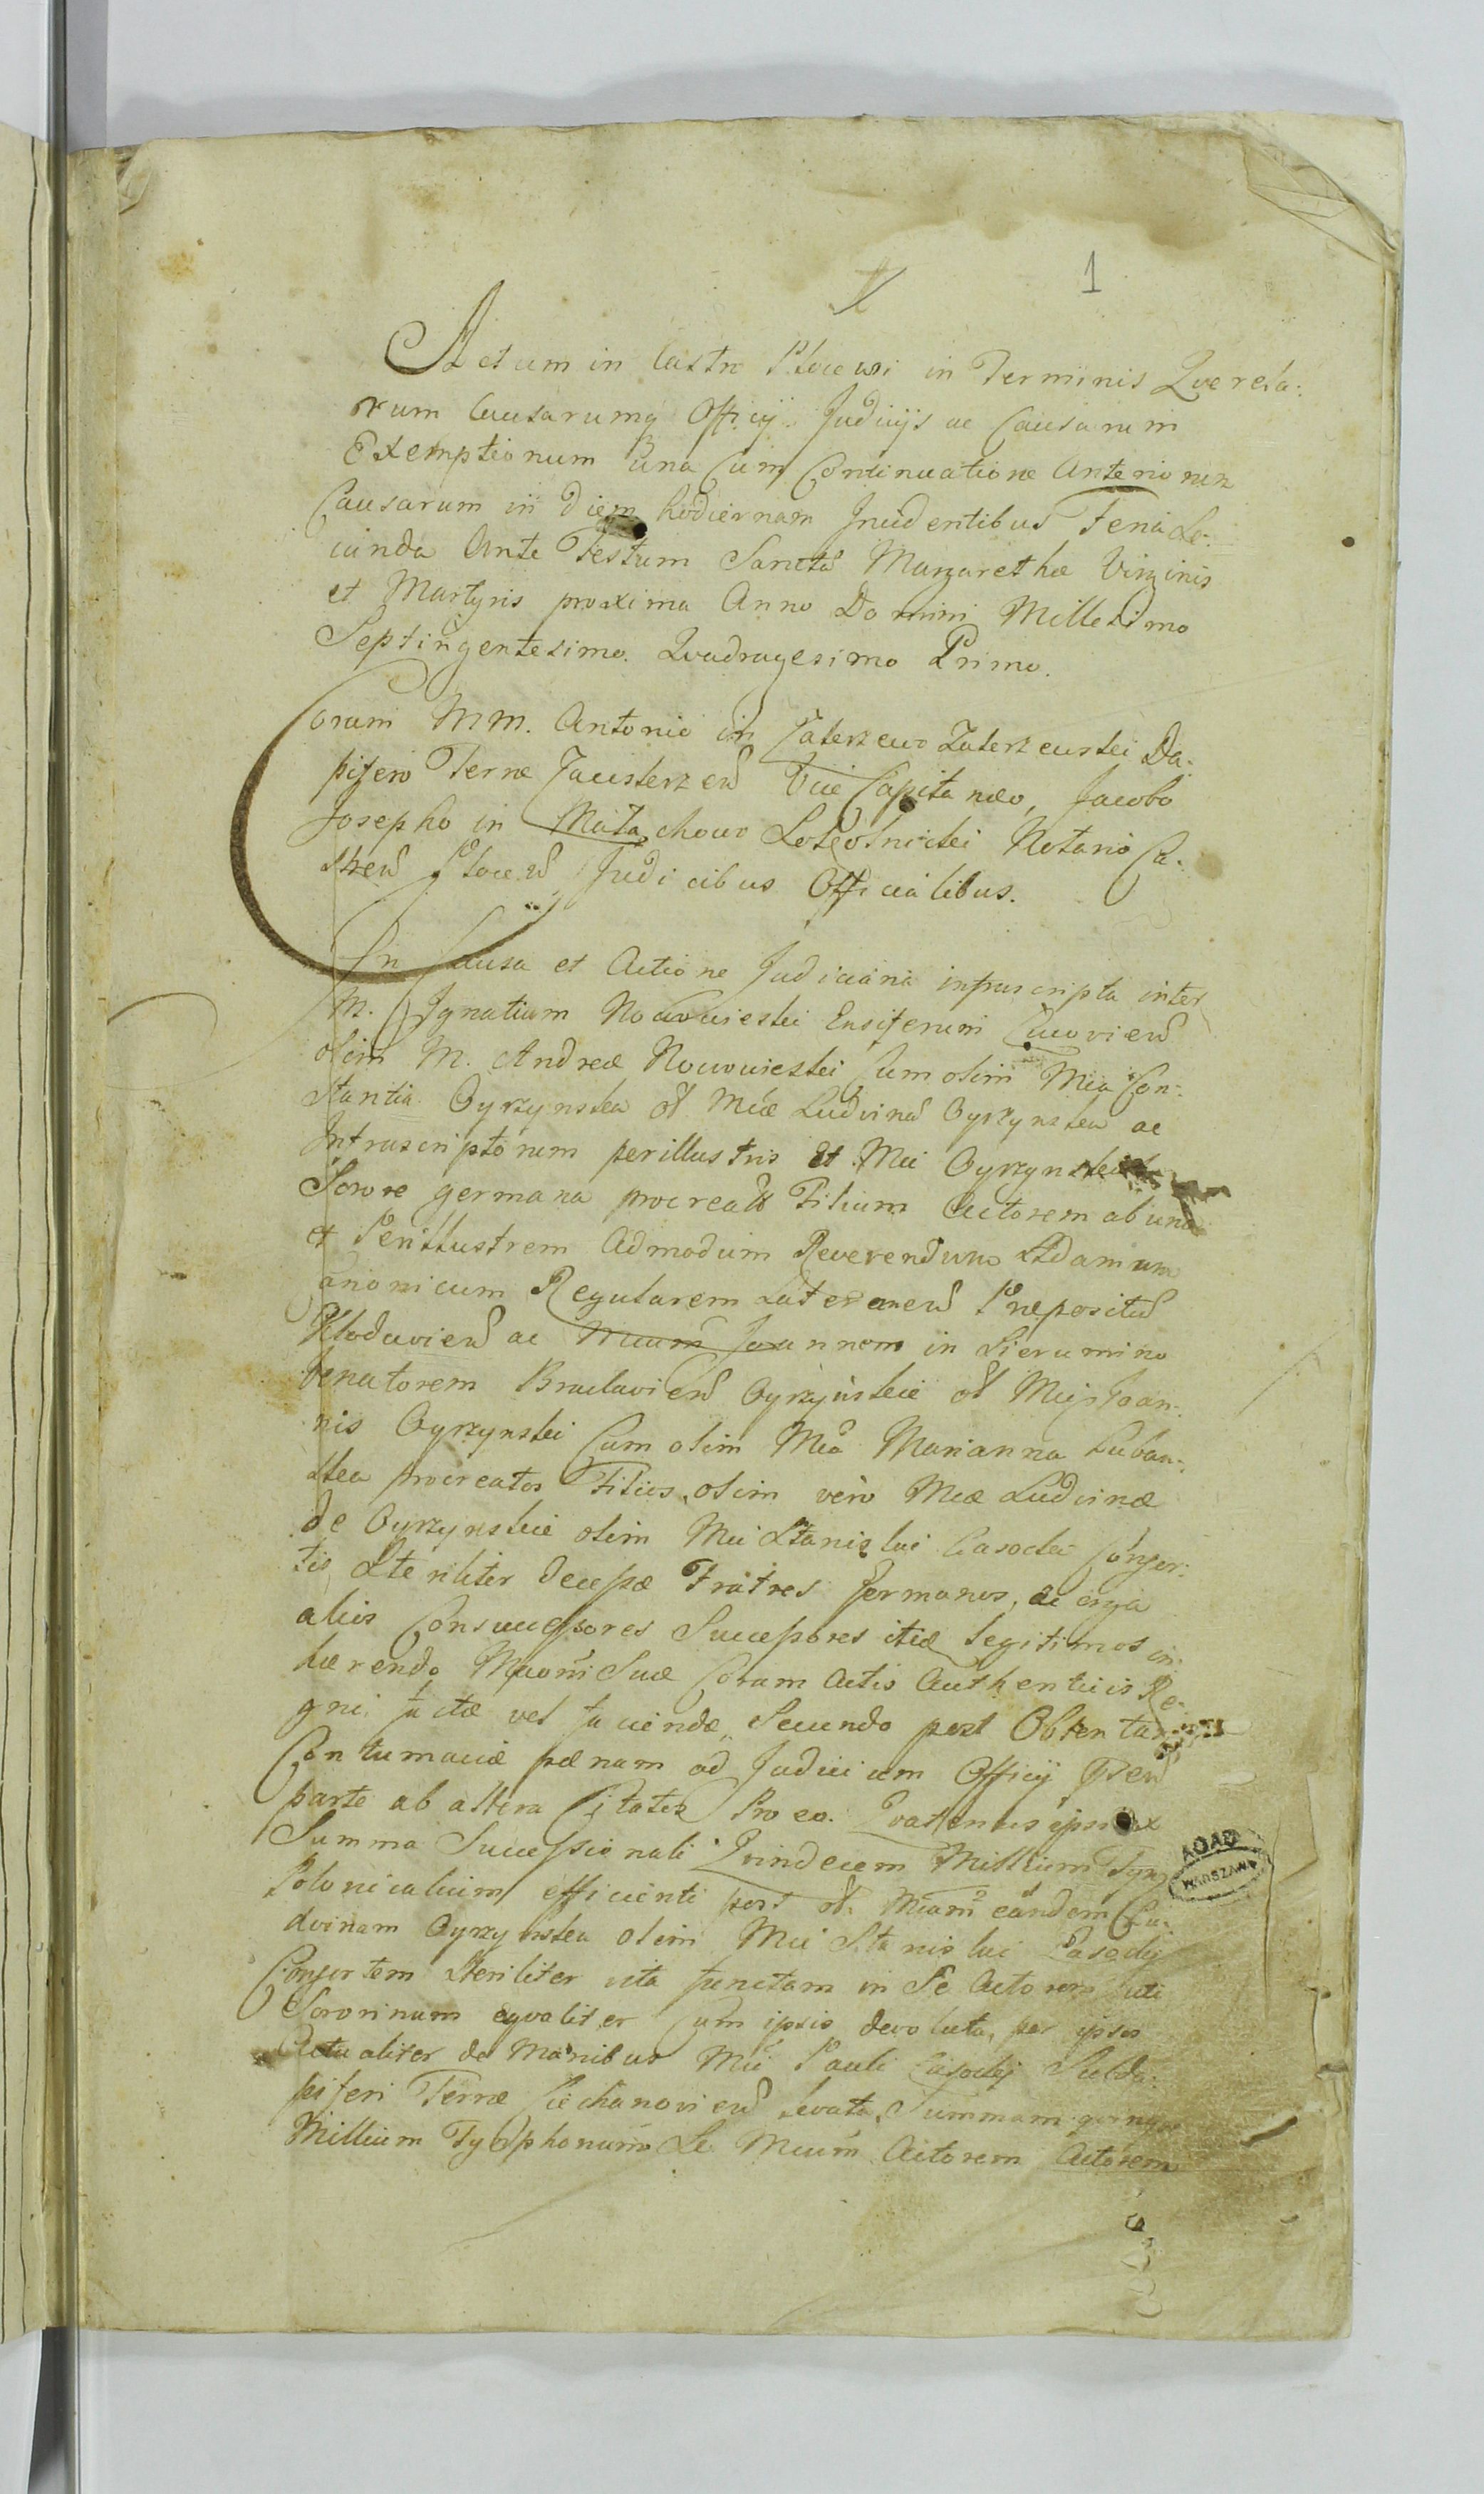 1
Actum in Castro Plocensi in Terminis Querela:
rum Causarumq Officij Judicijs ac Causarum
Exemptionum una Cum Continuatione Anteriorum
Causarum in diem hodiernam Incidentibus Feria Se:
cunda Ante Festum Sanctae Margarethae Virginis
et Martyris proxima Anno Domini Millesimo
Septingentesimo. Quadragesimo Primo.
Coram MM. Antonio in Zaterzewo Zaterzewski Da:
pifero Terrae Zawskrzen Vice Capitaneo, Jacobo
Josepho in Mata chowo Notario Ca:
stren Plocen Judicibus Officialibus.
In Causa et Actione Judiciaria infrascripta inter
M. Ignatium Nowowieski Ensiferum
olim M. Andreae Nowowieski Cum olim Mca Con:
stantia Gyrzynska ol Mcae Ludvinae Gyrzynska ac
Infrascriptorum perillustris et Mci Gyrzynski
Sorore germana procreatu Filium Actorem ab una
et Perillustrem Admodum Reverendum Adamum
Canonicum Regularem Lateranen Praepositu
Klodavien ac Mcum Joannem in Sierumino
Venatorem Braclavien Gyrzynskie ol Mcij Joan:
nis Gyrzynski Cum olim Mca Marianna Luban:
ska procreatos Filios, olim vero Mcae Ludvinae
de Gyrzynskie olim Mci Stanislai Consor:
tis Steriliter decessae Fratres Germanos, ac erga
alios Consuccessores Successores itid legitimos in:
haerendo Suae Coram Actis Authenticis Re:
gni factae vel faciendae, Secundo post Obtentam
Contumaciae paenam ad Judicium Officij Psen
parte ab altera Citatos Pro eo. Quatenus ipsi ex
Summa Successionali Quindecem Millium Tynf
Polonicalium efficienti post ol. Mcam eandem Lu:
dvinam Gyrzynska olim Mci Stanislai
Consortem Steriliter vita functam in Se Actorem uti
Sororinum eqvaliter Cum ipsis devoluta, per ipsos
Actualiter de Manibus Mci Pauli Subda:
piferi Terrae Ciechanovien levata, Summam quinque
Millium Tymphonum Se Mcum Actorem Actorem
AGAD
WARSZAWA